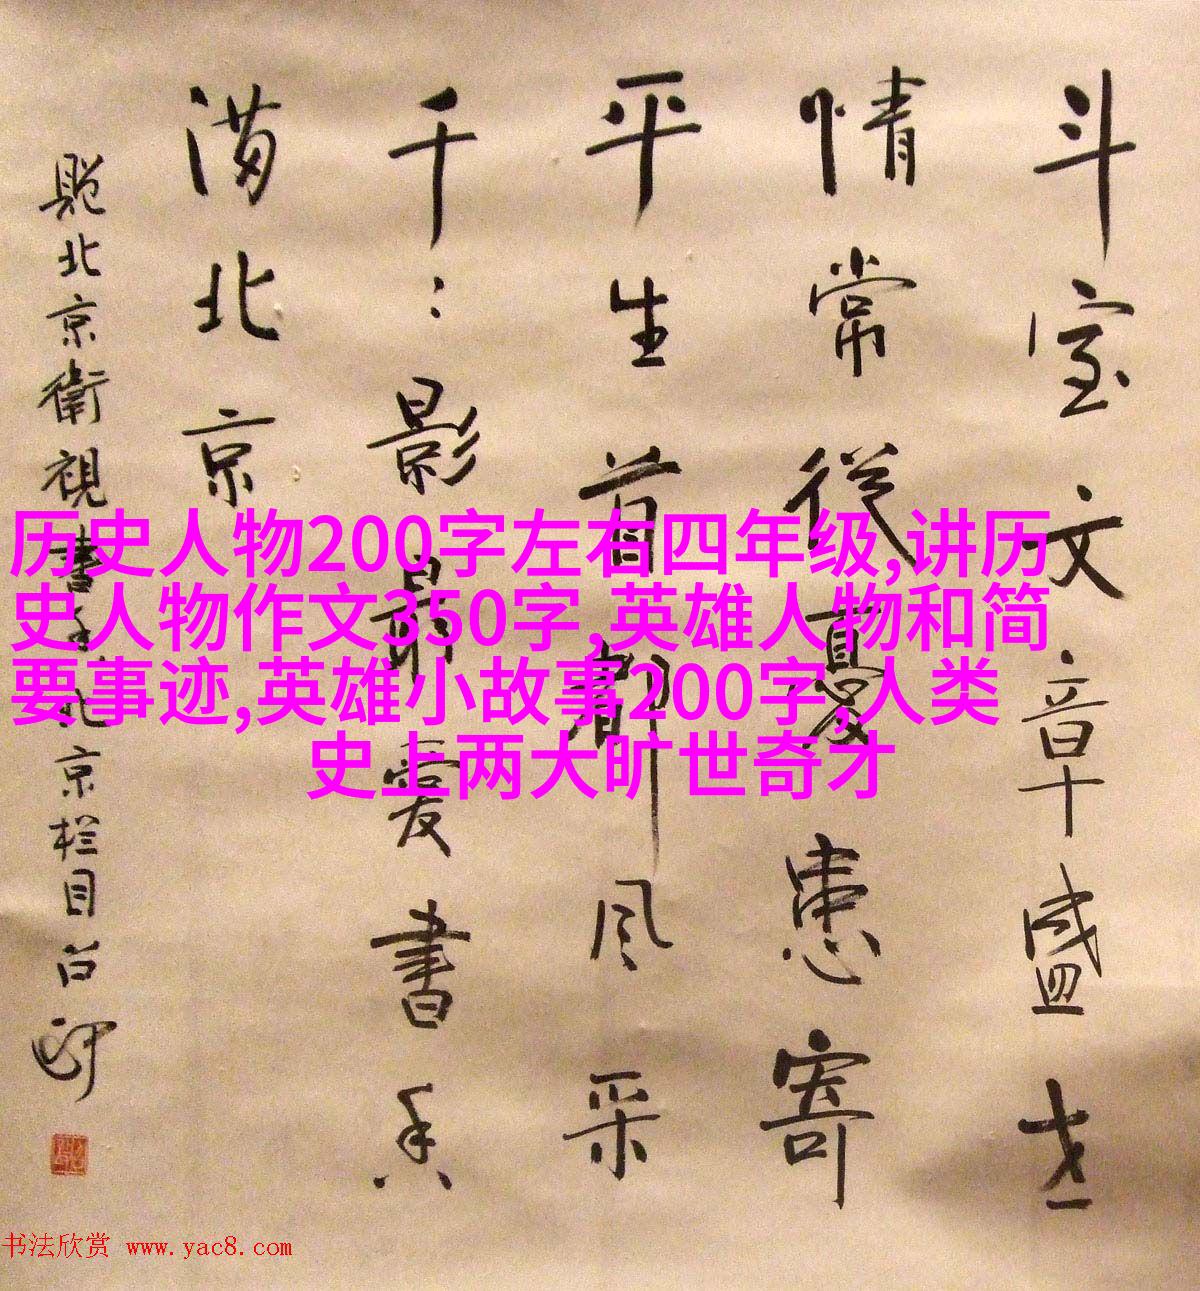 斗室文章盛世
情常從憂患寄
平生首都风采
千：影最爱書香
满北京
题北京衛視書香北京栏目
历史人物200字左右四年级,讲历
史人物作文350字,英雄人物和简
要事迹,英雄小故事200字,人类
史上两大旷世奇才
书法欣赏 www.yac8.com